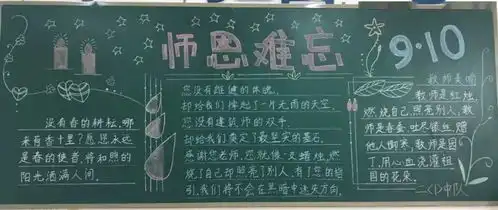 师恩难忘
9·10
没有春的耕耘,哪
来育香十里？愿您永远
是春的使者,将和煦的
阳光洒满人间。
您没有雄健的体魄,
却给我们撑起了一片无雨的天空,
您没有建筑师的双手,
却给我们奠定了最坚实的基石,
感谢您老师,您就像一支蜡烛,燃
烧了自己却照亮了别人,有了您的指
引,我们将不会在黑暗中迷失方向。
教师是烛
教师是红烛,
燃烧自己,照亮别人,教
师是春蚕,吐尽银丝,赠
他人御寒,教师是园
丁,用心血浇灌祖
国的花朵。
二(1)中队